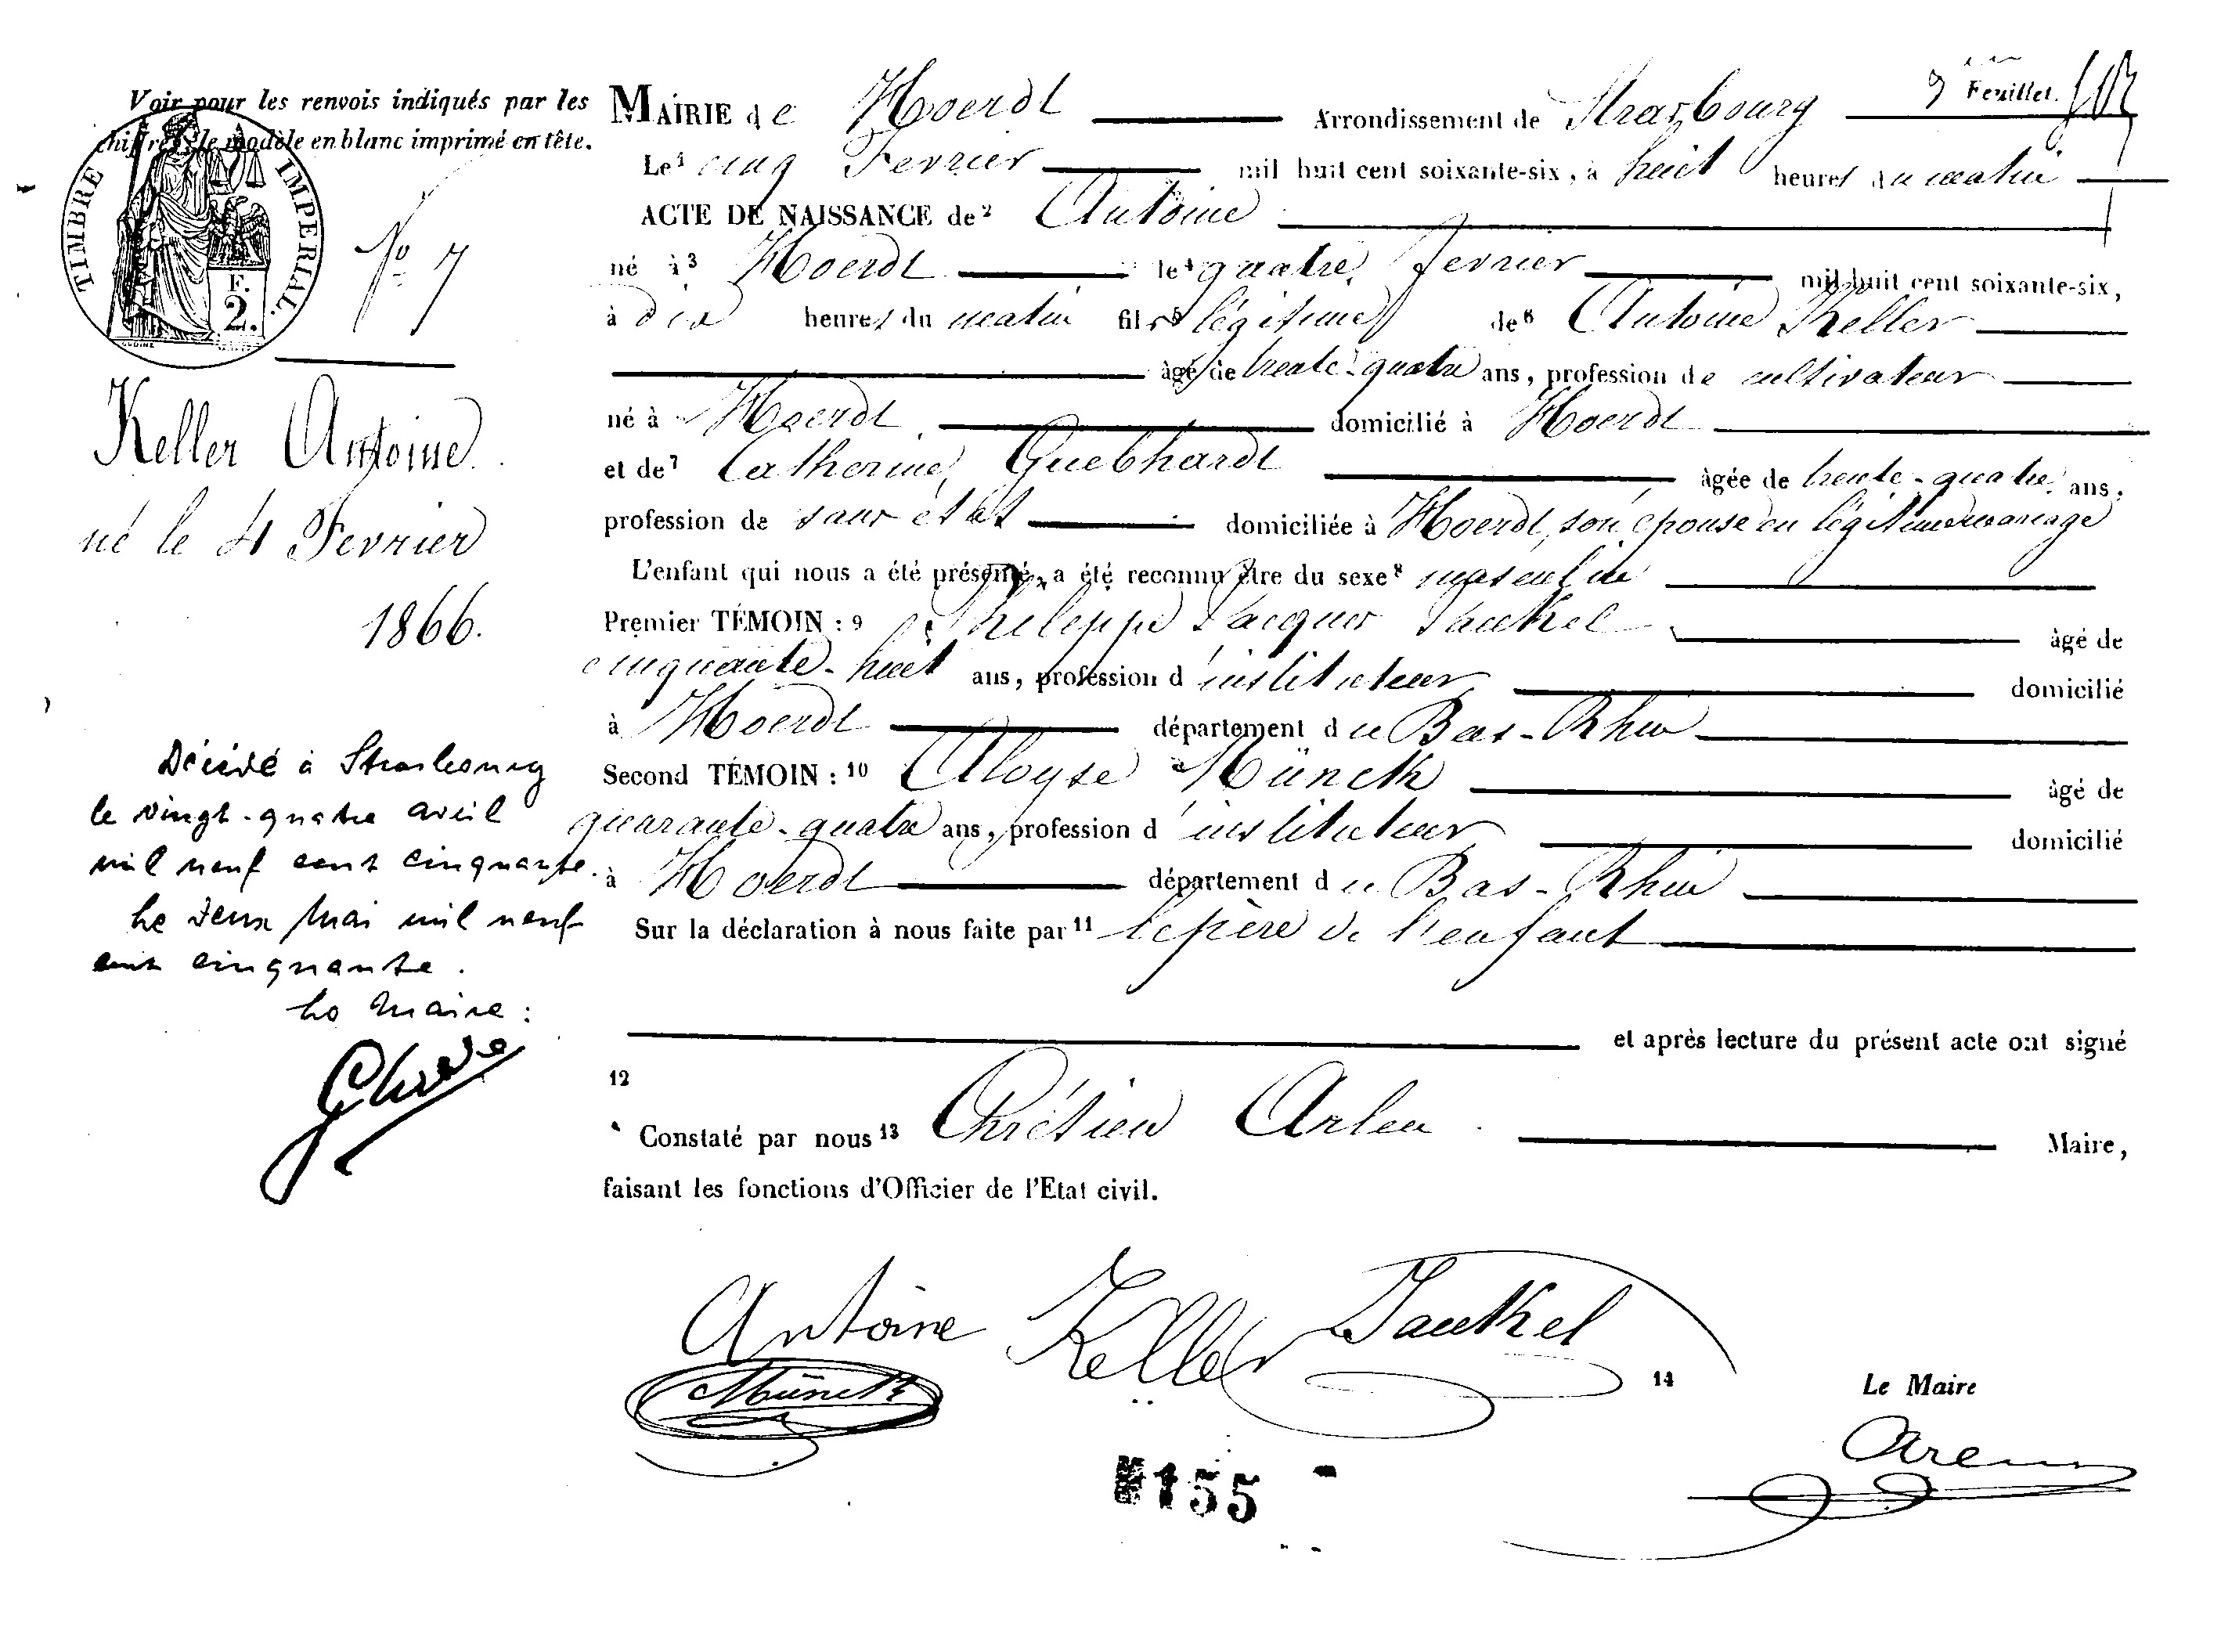 Voir pour les renvois indiqués par les
chiffres le modèle en blanc imprimé en tête.
TIMBRE IMPERIAL.
F.
2.
No 7
Keller Antoine
né le 4 Fevrier
1866.
Décédé à Strasbourg
le vingt-quatre avril
mil neuf cent cinquante.
Le deux Mai mil neuf
cent cinquante.
Le Maire :
9 Feuillet.
MAIRIE de Hoerdt Arrondissement de Strasbourg
Le 1 cinq Fevrier mil huit cent soixante-six, à huit heures du matin
ACTE DE NAISSANCE de 2 Antoine
né à 3 Hoerdt le 4 quatre fevrier mil huit cent soixante-six,
à dix heures du matin fils 5 légitime de 6 Antoine Keller
âgé de trente-quatre ans, profession de cultivateur
né à Hoerdt domicilié à Hoerdt
et de 7 Catherine Guebhardt âgée de trente-quatre ans,
profession de sans état domiciliée à Hoerdt, son épouse en légitime mariage
L'enfant qui nous a été présenté, a été reconnu être du sexe 8 masculin
Premier TÉMOIN : 9 Philippe Jacques Jauckel âgé de
cinquante-huit ans, profession d'instituteur domicilié
à Hoerdt département du Bas-Rhin
Second TÉMOIN : 10 Aloyse Münck âgé de
quarante-quatre ans, profession d'instituteur domicilié
à Hoerdt département du Bas-Rhin
Sur la déclaration à nous faite par 11 le père de l'enfant
et après lecture du présent acte ont signé
12
Constaté par nous 13 Chrétien Maire,
faisant les fonctions d'Officier de l'Etat civil.
Antoine Keller
Münck
14 Le Maire
155